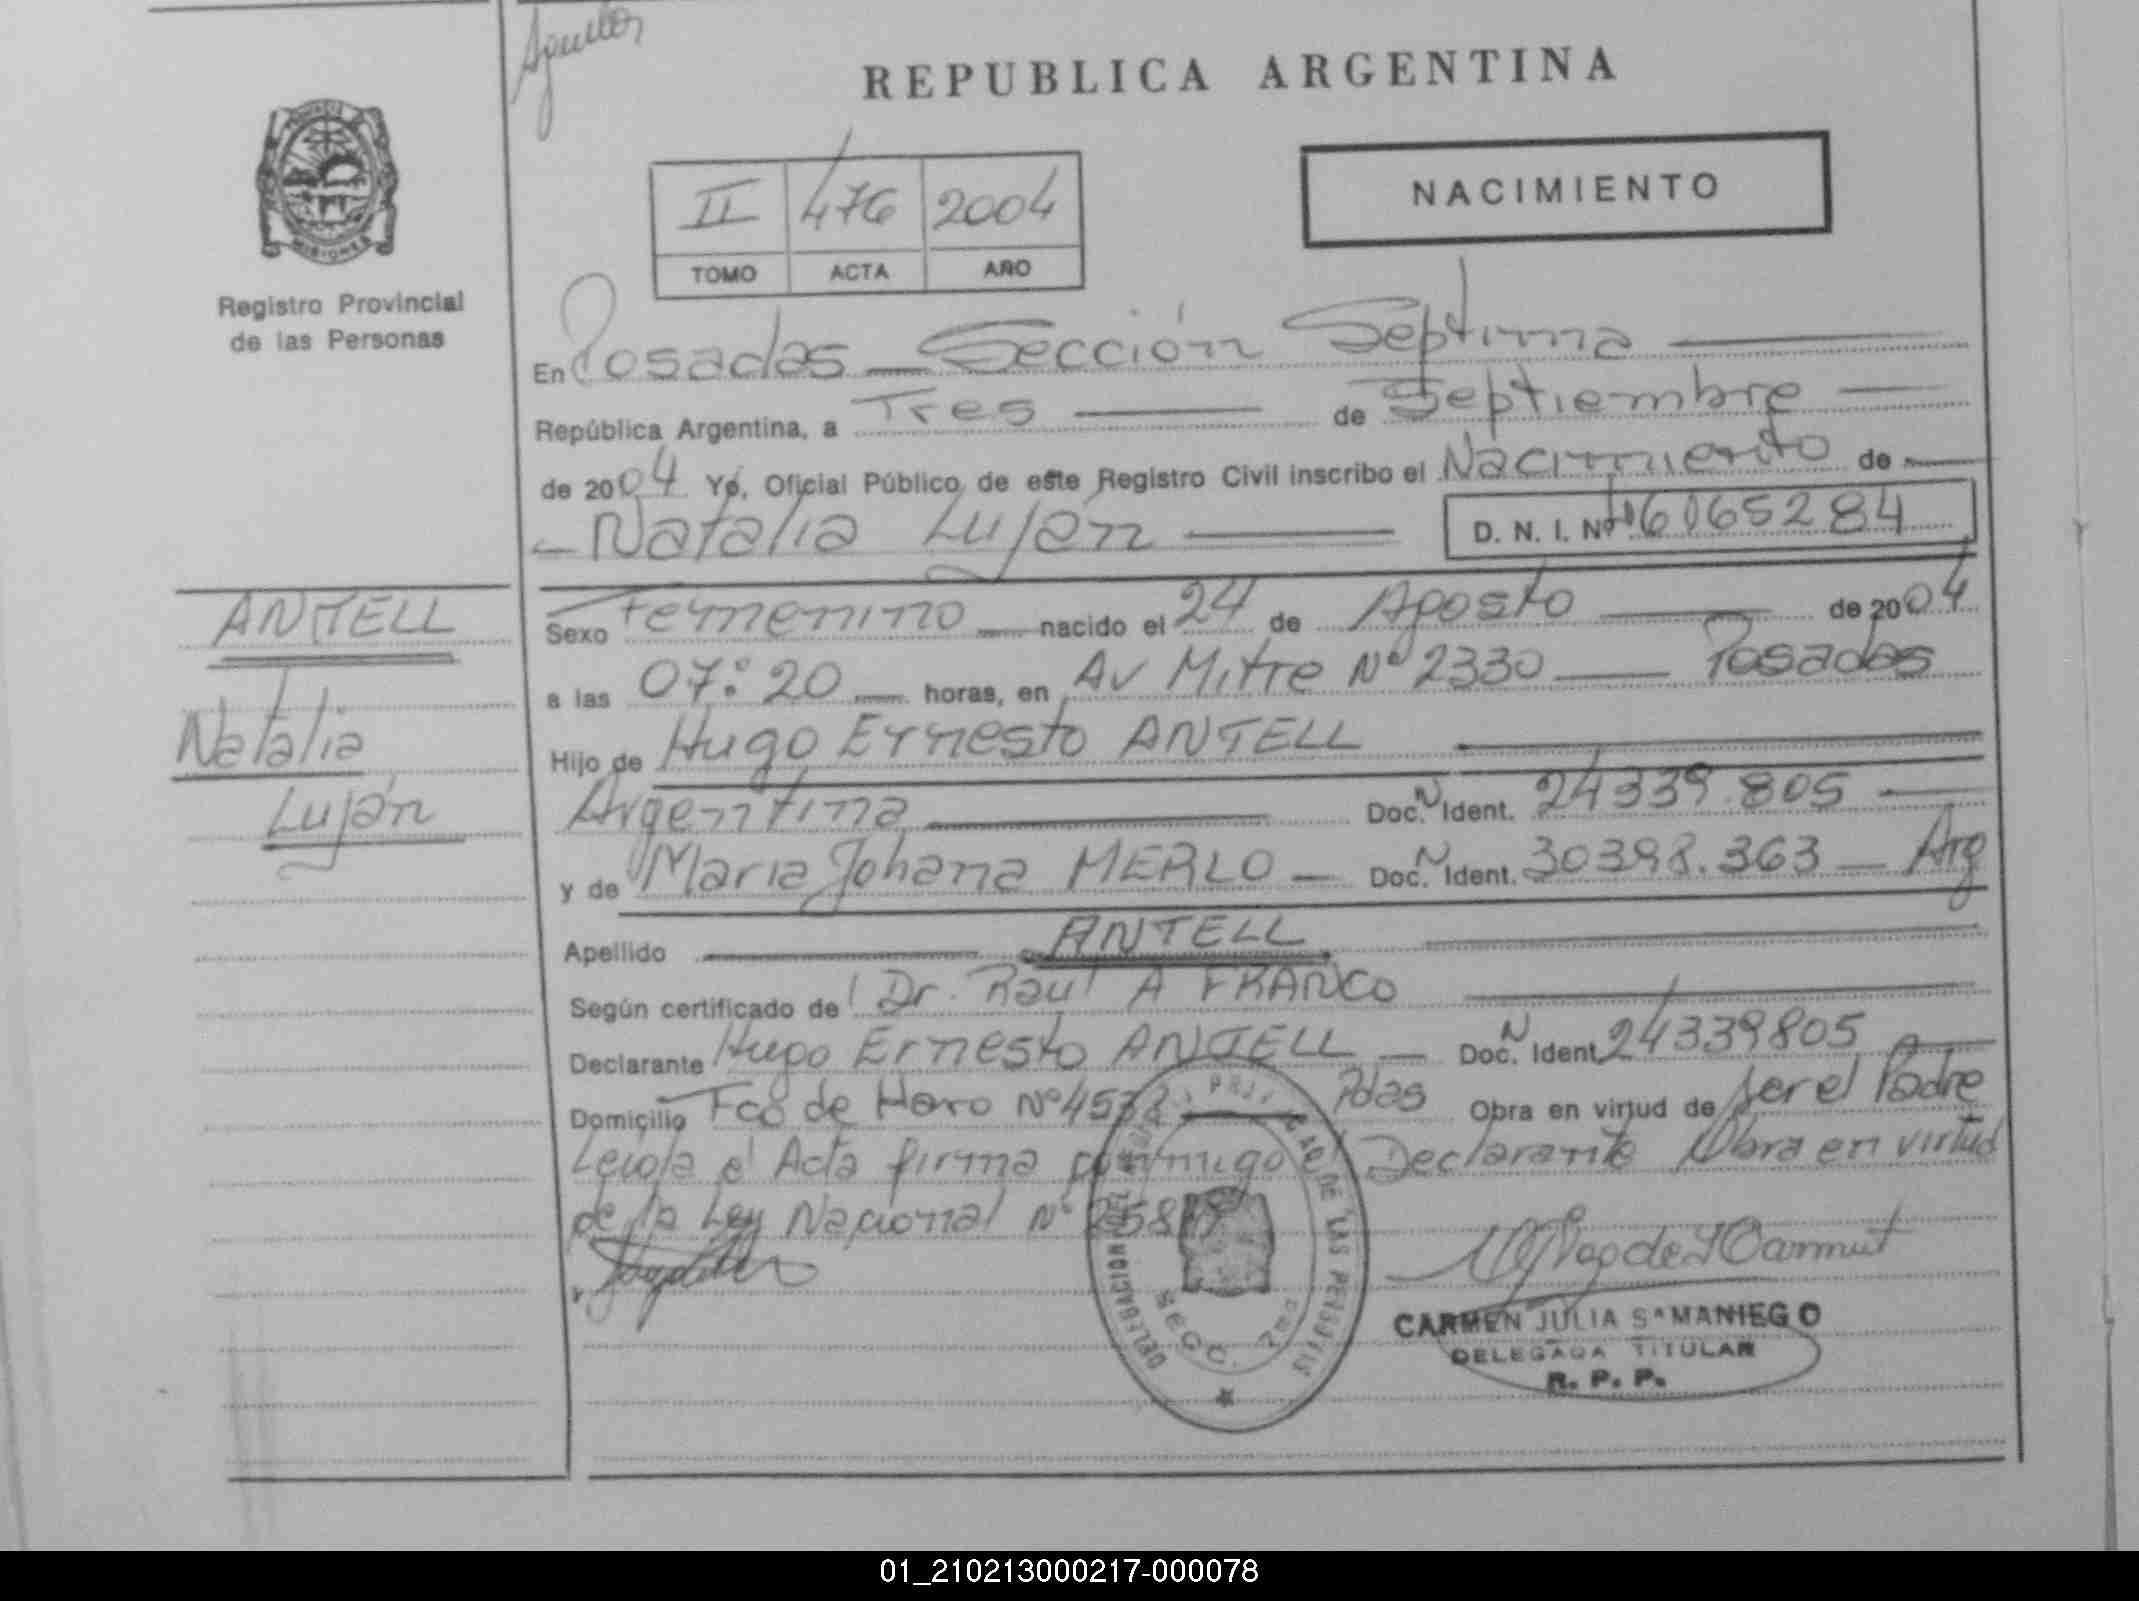 REPUBLICA ARGENTINA
Registro Provincial
de las Personas
II 476 2004
TOMO ACTA AÑO
NACIMIENTO
En Posadas Sección Septima
República Argentina, a Tres de Septiembre
de 2004 Yo, Oficial Público de este Registro Civil inscribo el Nacimiento de
Natalia Luján D. N. I. Nº 46065284
ANTELL
Natalia
Luján
Sexo Femenino nacido el 24 de Agosto de 2004
a las 07:20 horas, en Av Mitre Nº 2330 Posadas
Hijo de Hugo Ernesto ANTELL
Argentina Doc. N Ident. 24339.805
y de Maria Johana MERLO Doc. N Ident. 30398.363 Arg
Apellido ANTELL
Según certificado de Dr. Raul A FRANCO
Declarante Hugo Ernesto ANTELL Doc. N Ident 24339805
Domicilio Fco de Haro Nº Pdas Obra en virtud de ser el Padre
Leida el Acta firma conmigo el Declarante Obra en virtud
de la Ley Nacional Nº
DELEGACION DE LAS PERSONAS
SECC. 7ma
CARMEN JULIA SAMANIEGO
DELEGADA TITULAR
R. P. P.
01_210213000217-000078